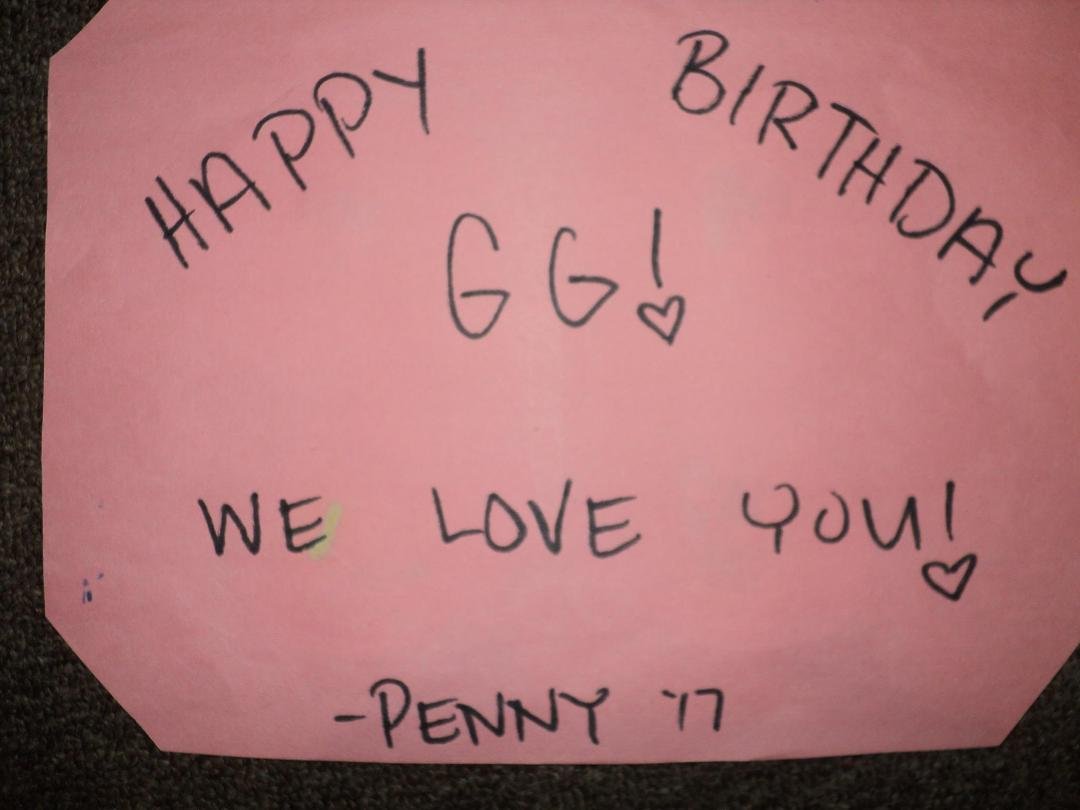 HAPPY BIRTHDAY
GG!
WE LOVE YOU!
-PENNY '17